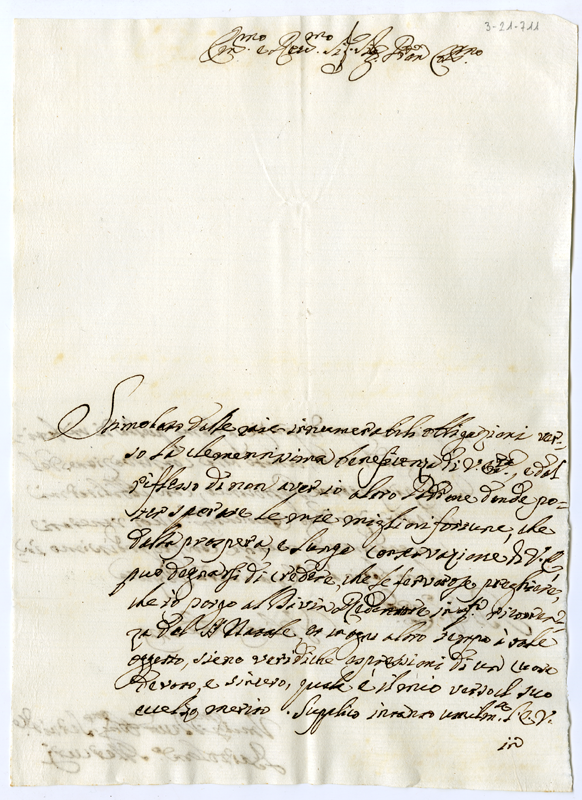 3-21-711
Em.mo e Rev.mo Sig. Sig. Pron Col.mo
Stimolato dalle mie innumerabili obligazioni ver-
so la clementissima beneficenza di V. Em.za, e dal
riflesso di non aver io altro Padrone donde po-
ter sperare le mie migliori fortune, che
dalla prospera, e lunga conservazione di V. E.
può degnarsi di credere che le fervorose preghiere,
che io porgo al Divin Redentore in questa ricorren-
za del S. Natale, et in ogni altro tempo a tale
oggetto, sieno veridiche espressioni di un cuore
devoto, e sincero, quale è il mio verso il suo
eccelso merito. Supplico intanto umilm.te l'E. V.
in